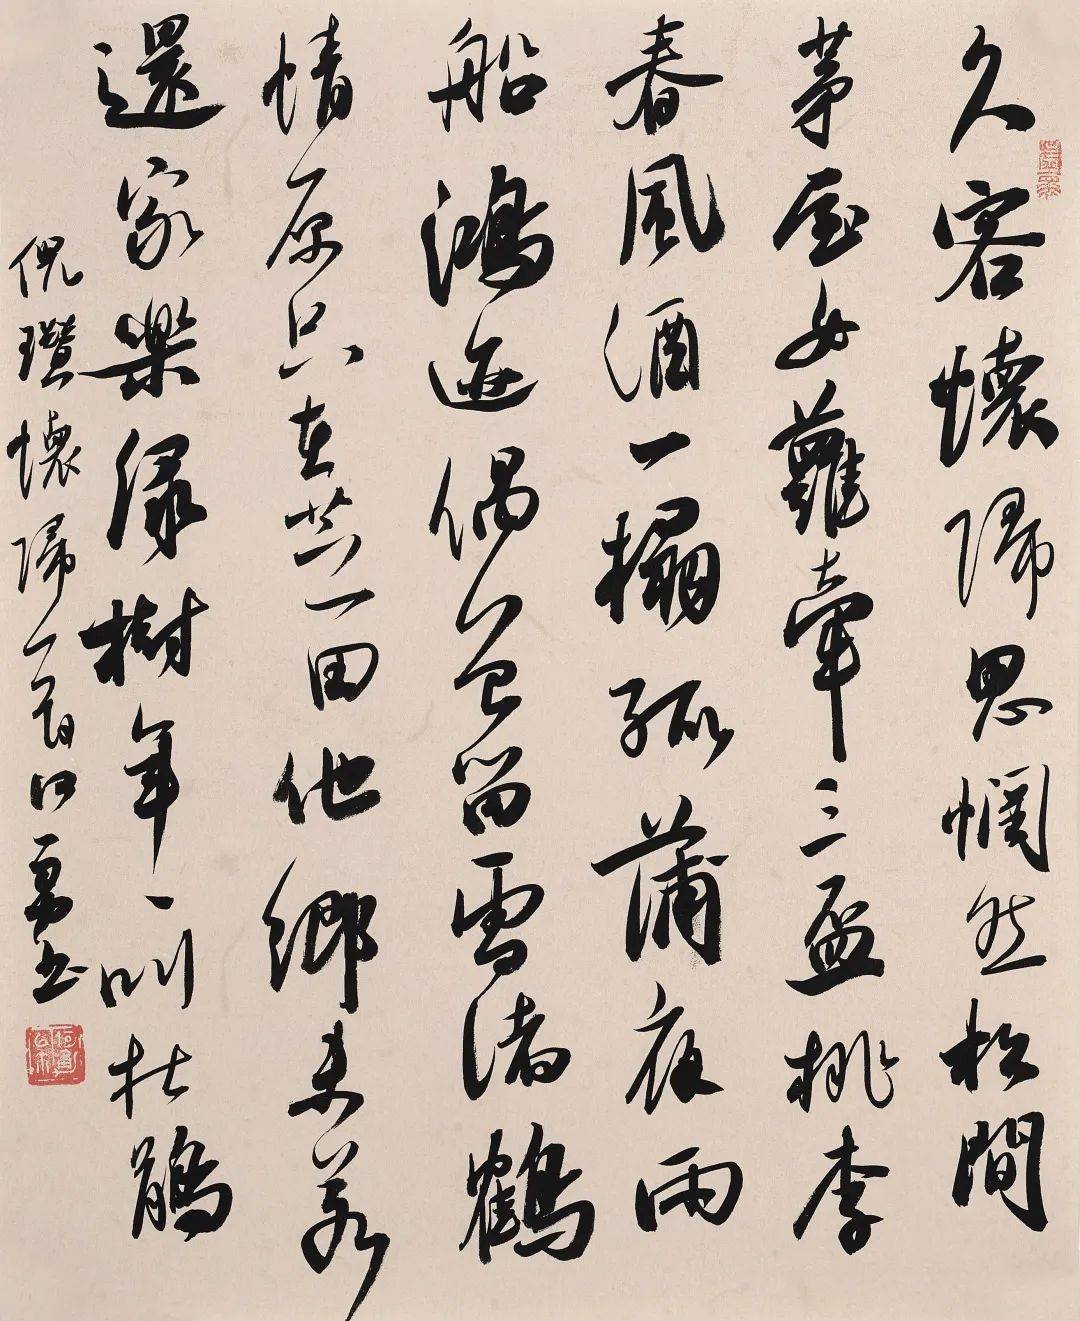 久客懷歸思惘然松間
茅屋女蘿牽三盃桃李
春風酒一榻孤蒲夜雨
船鴻迹偶曾留雪渚鶴
情原只在芝田他鄉未若
還家樂綠樹年丶叫杜鵑
倪瓚懷歸一首何勇書